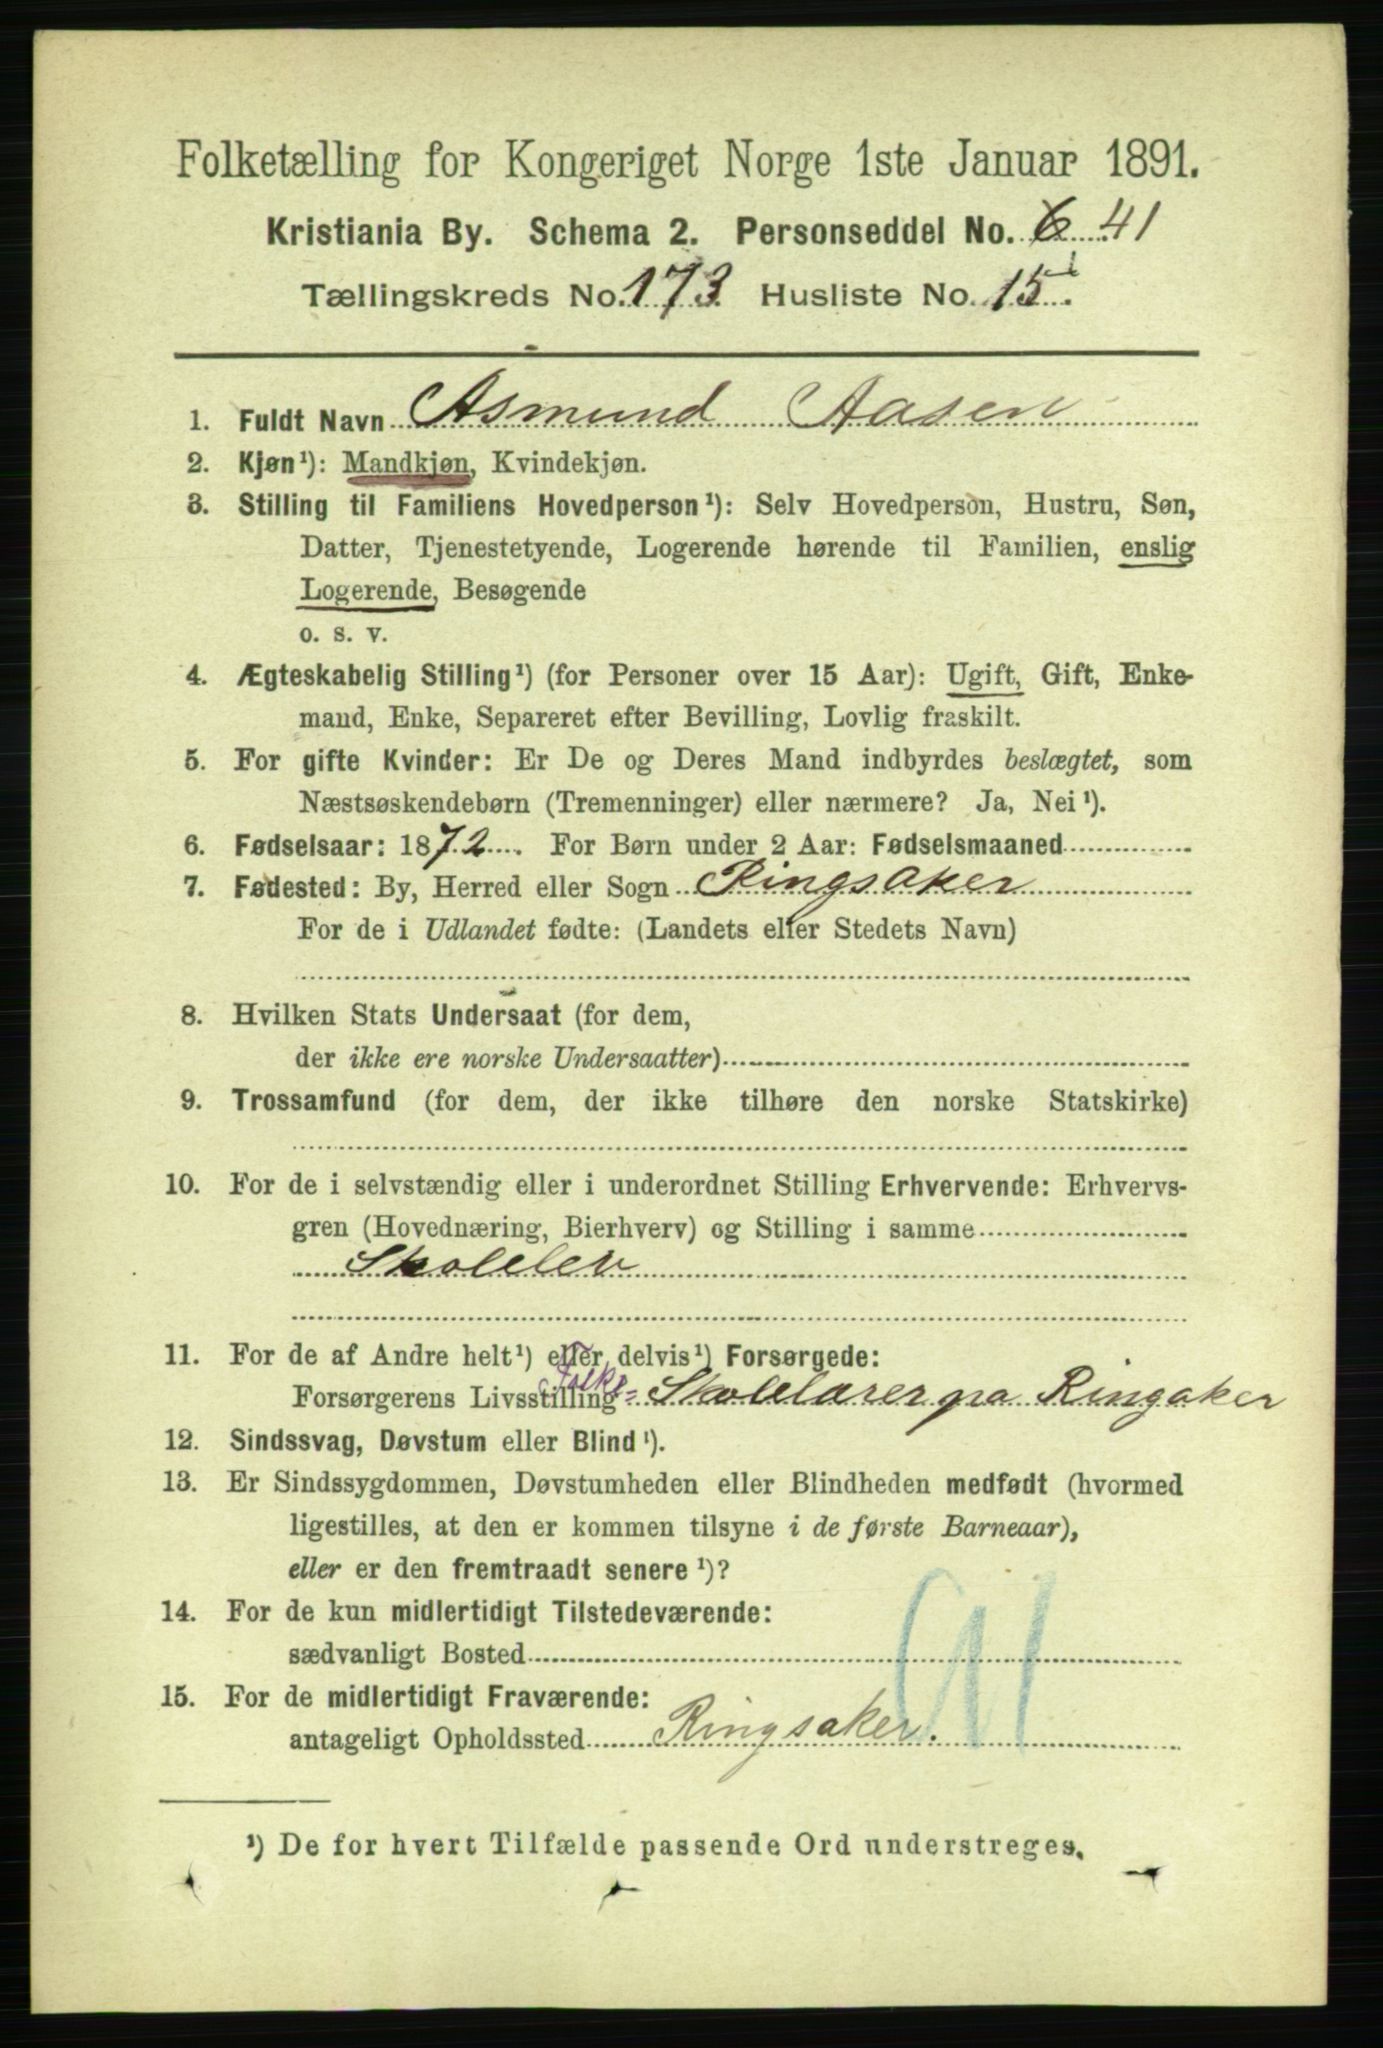 Folketælling for Kongeriget Norge 1ste Januar 1891.
Kristiania By. Schema 2. Personseddel No. 6 41
Tællingskreds No. 173 Husliste No. 15.
1. Fuldt Navn Asmund Aasen
2. Kjøn¹): Mandkjøn, Kvindekjøn.
3. Stilling til Familiens Hovedperson¹): Selv Hovedperson, Hustru, Søn,
Datter, Tjenestetyende, Logerende hørende til Familien, enslig
Logerende, Besøgende
o. s. v.
4. Ægteskabelig Stilling¹) (for Personer over 15 Aar): Ugift, Gift, Enke-
mand, Enke, Separeret efter Bevilling, Lovlig fraskilt.
5. For gifte Kvinder: Er De og Deres Mand indbyrdes beslægtet, som
Næstsøskendebørn (Tremenninger) eller nærmere? Ja, Nei¹).
6. Fødselsaar: 1872. For Børn under 2 Aar: Fødselsmaaned
7. Fødested: By, Herred eller Sogn Ringsaker
For de i Udlandet fødte: (Landets eller Stedets Navn)
8. Hvilken Stats Undersaat (for dem,
der ikke ere norske Undersaatter)
9. Trossamfund (for dem, der ikke tilhøre den norske Statskirke)
10. For de i selvstændig eller i underordnet Stilling Erhvervende: Erhvervs-
gren (Hovednæring, Bierhverv) og Stilling i samme
Skolelev
11. For de af Andre helt¹) eller delvis¹) Forsørgede:
Forsørgerens Livsstilling Folke= Skolelærer pa Ringaker
12. Sindssvag, Døvstum eller Blind¹).
13. Er Sindssygdommen, Døvstumheden eller Blindheden medfødt (hvormed
ligestilles, at den er kommen tilsyne i de første Barneaar),
eller er den fremtraadt senere¹)?
14. For de kun midlertidigt Tilstedeværende:
sædvanligt Bosted
15. For de midlertidigt Fraværende:
antageligt Opholdssted Ringsaker.
¹) De for hvert Tilfælde passende Ord understreges.